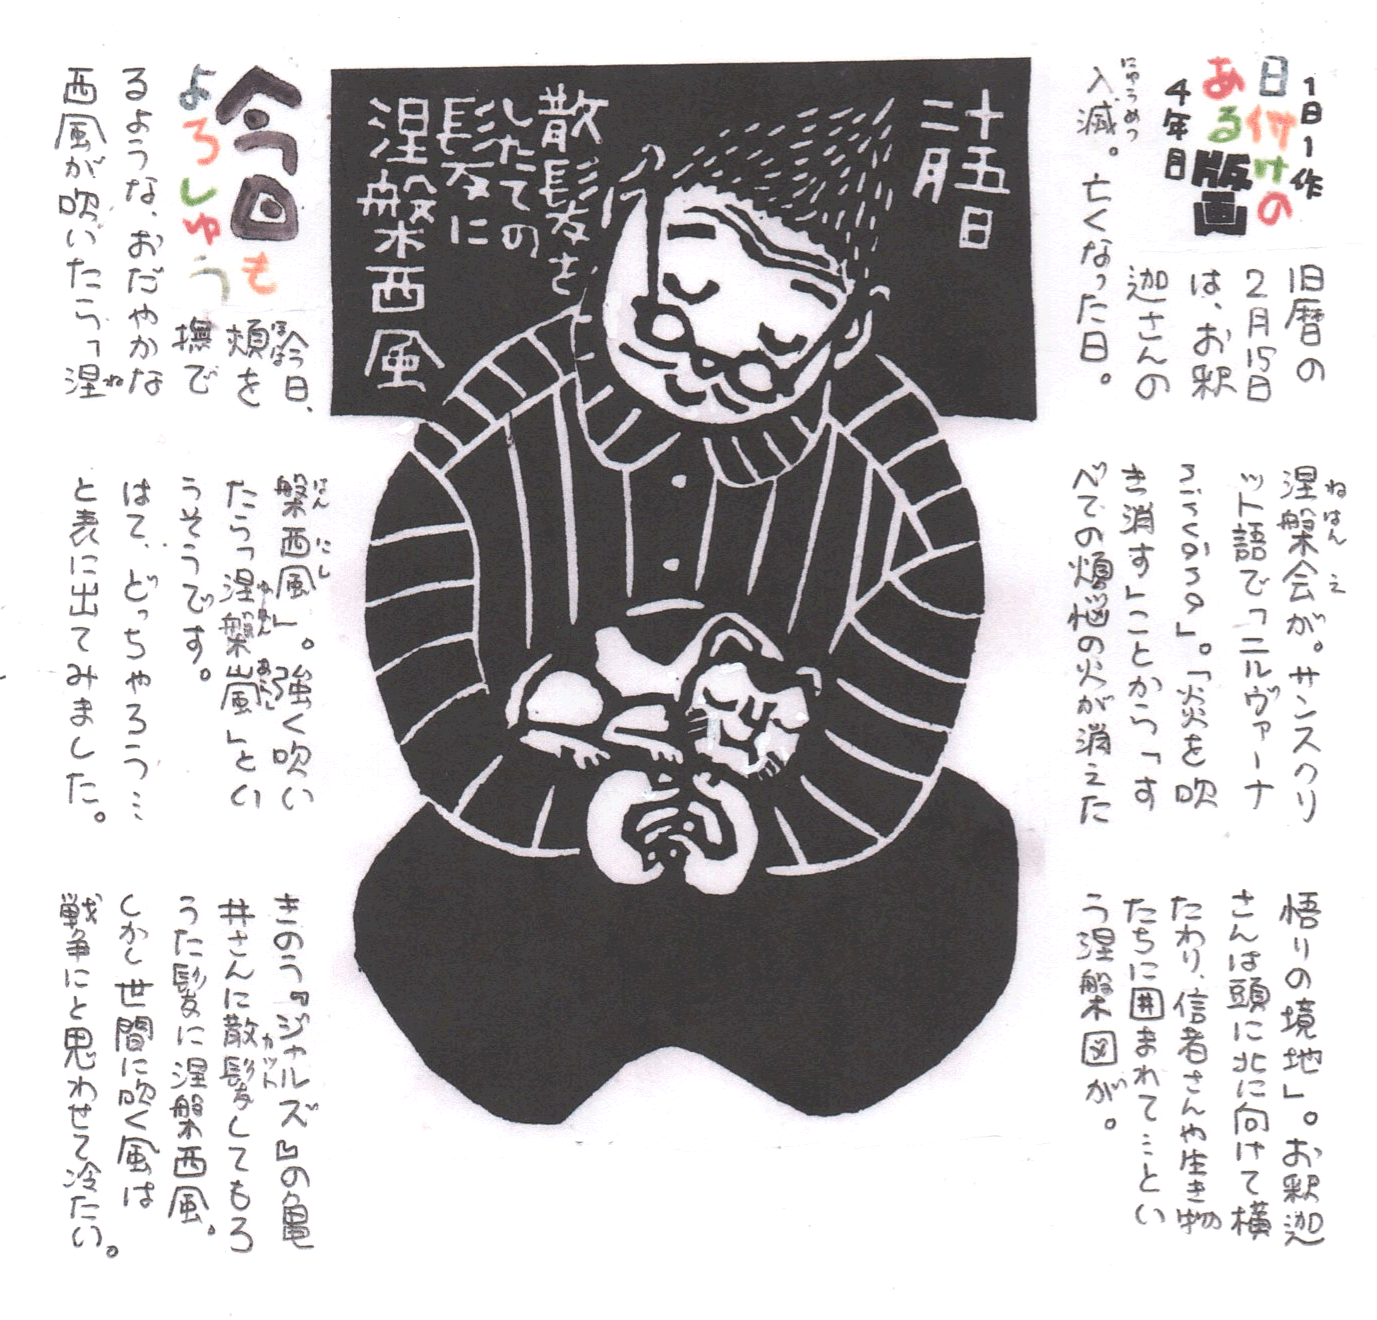 1日1作
日付けの
ある版画
4年目
旧暦の
2月15日
は、お釈
迦さんの
入滅。亡くなった日。
にゅうめつ
涅槃会が。サンスクリ
ねはんえ
ット語で「ニルヴァーナ
nirvana」。「炎を吹
き消す」ことから「す
べての煩悩の火が消えた
悟りの境地」。お釈迦
さんは頭に北に向けて横
たわり、信者さんや生き物
たちに囲まれて…とい
う涅槃図が。
二月
十五日
散髪を
したての
髪に
涅槃西風
今日も
よろしゅう
今日、
頬を
ほほ
撫で
るような、おだやかな
西風が吹いたら「涅
ね
槃西風」。強く吹い
はんにし
たら「涅槃嵐」とい
あらし
うそうです。
はて、どっちゃろう…
と表に出てみました。
きのう『ジャルズ』の亀
井さんに散髪してもろ
カット
うた髪に涅槃西風。
しかし世間に吹く風は
戦争にと思わせて冷たい。